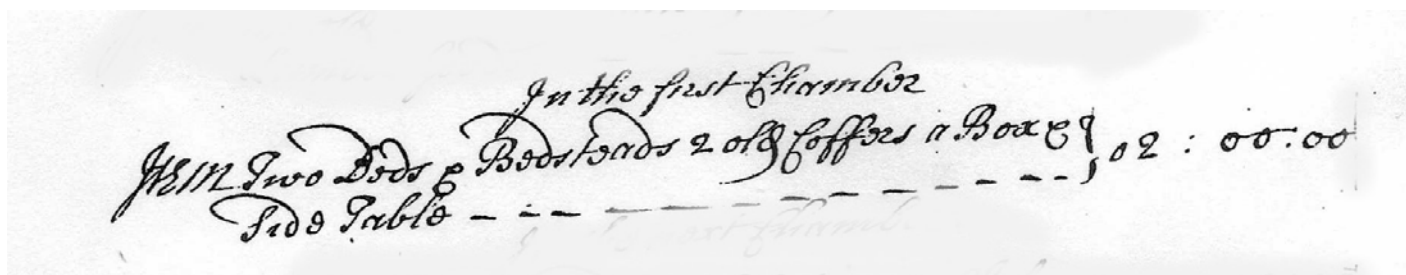 In the first Chamber
Item Two Beds & Bedsteads 2 old Coffers a Box & } 02 : 00 : 00
Side Table - - - - - - - - - - - -